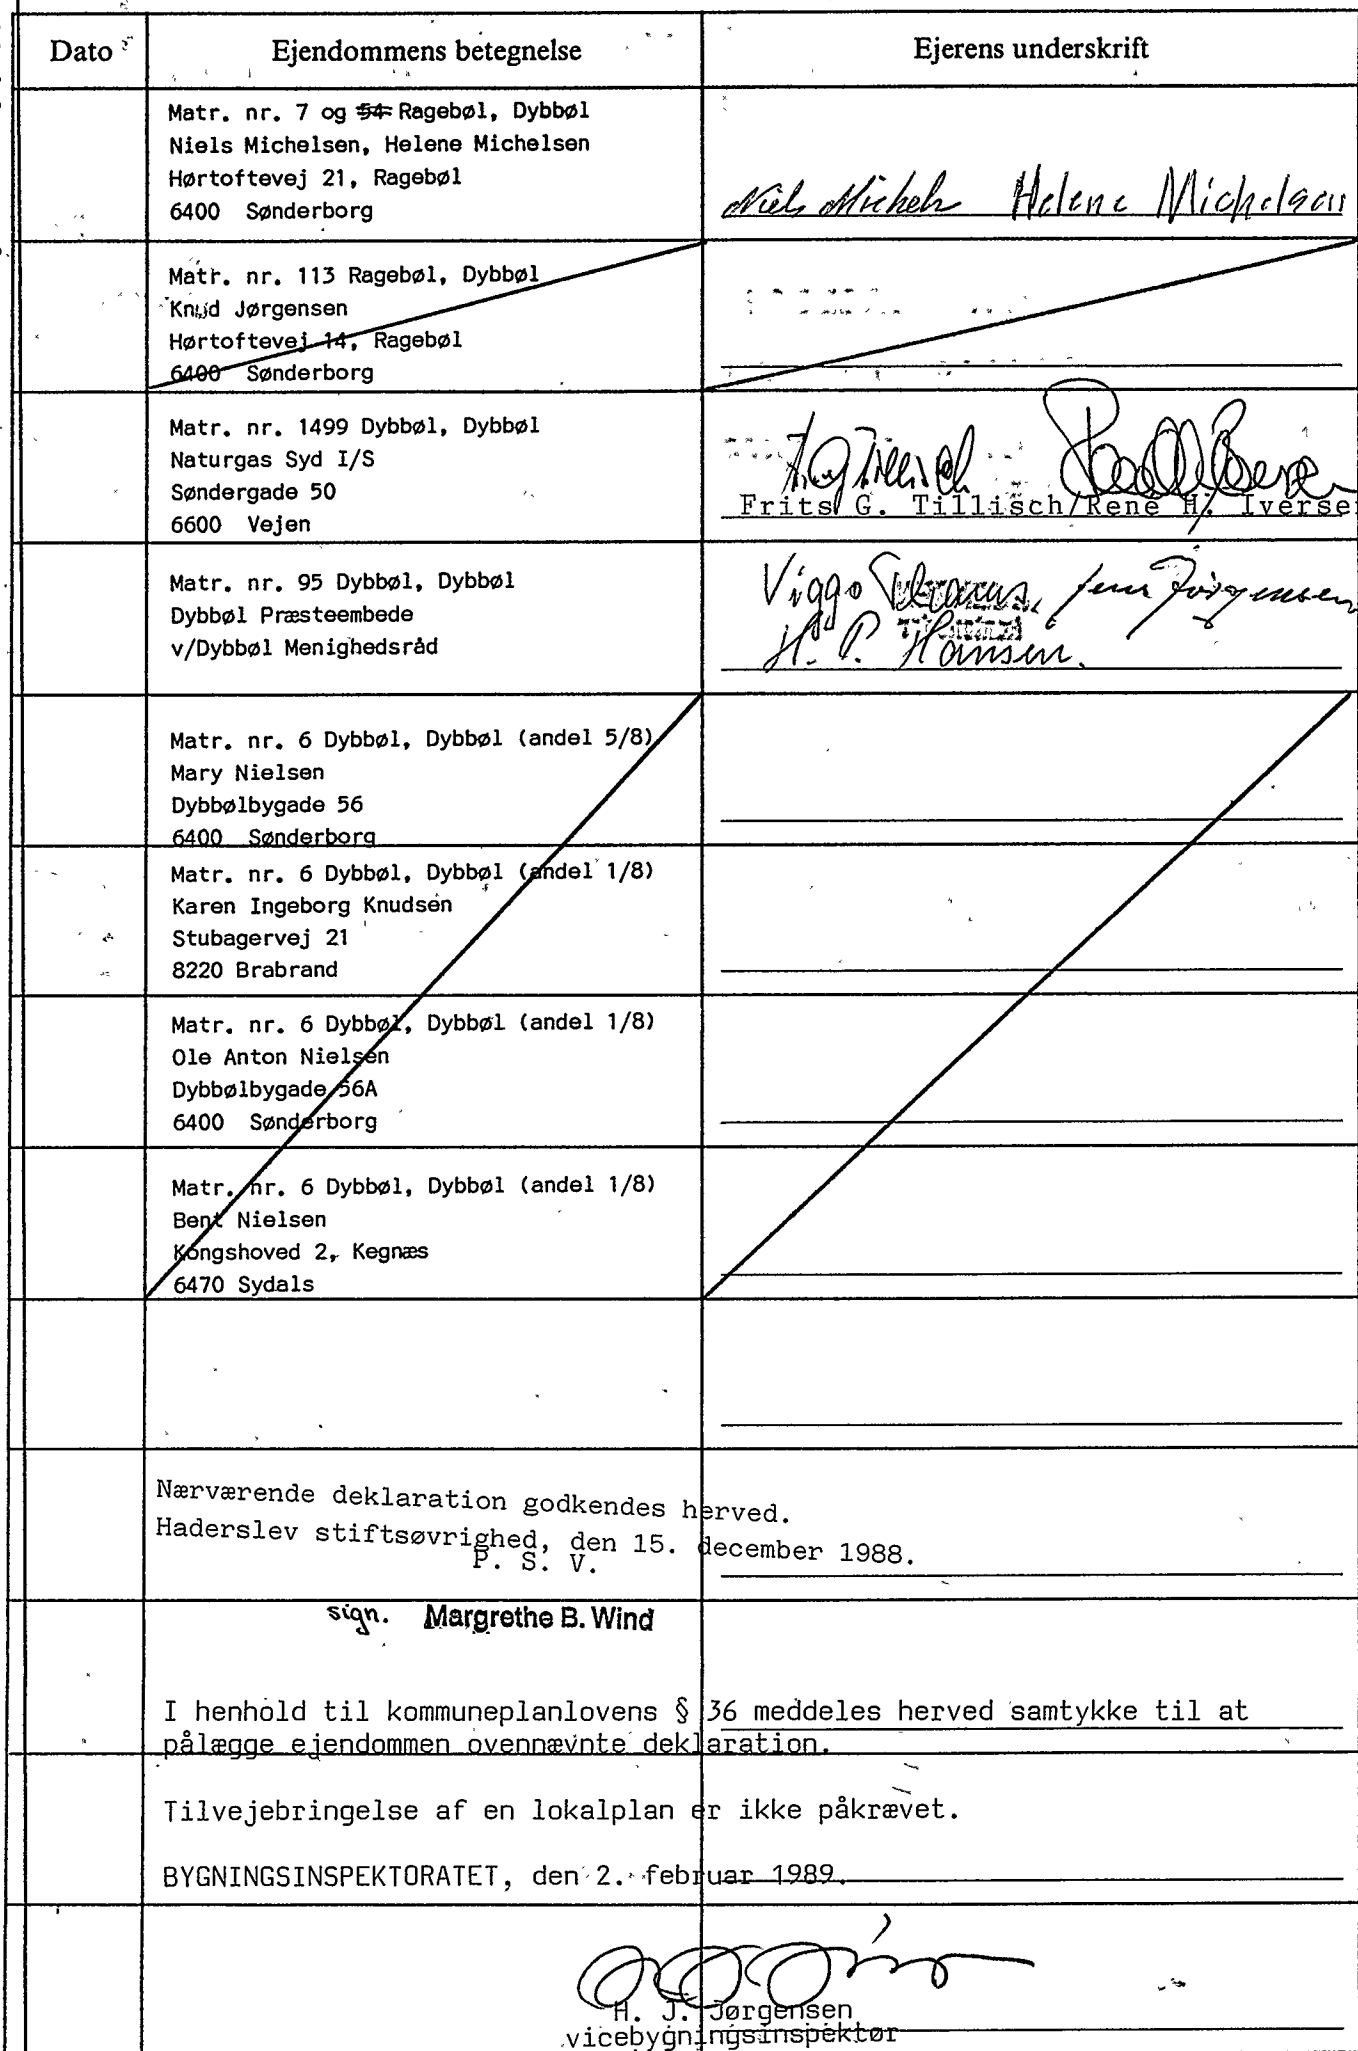 Dato Ejendommens betegnelse Ejerens underskrift
Matr. nr. 7 og 54 Ragebøl, Dybbøl
Niels Michelsen, Helene Michelsen
Hørtoftevej 21, Ragebøl
6400 Sønderborg
Niels Michels Helene Michelsen
Matr. nr. 113 Ragebøl, Dybbøl
Knud Jørgensen
Hørtoftevej 14, Ragebøl
6400 Sønderborg
Matr. nr. 1499 Dybbøl, Dybbøl
Naturgas Syd I/S
Søndergade 50
6600 Vejen
F G Tillisch
Frits G. Tillisch/Rene H. Iversen
Matr. nr. 95 Dybbøl, Dybbøl
Dybbøl Præsteembede
v/Dybbøl Menighedsråd
Viggo Jørgensen
H. P. Hansen.
Matr. nr. 6 Dybbøl, Dybbøl (andel 5/8)
Mary Nielsen
Dybbølbygade 56
6400 Sønderborg
Matr. nr. 6 Dybbøl, Dybbøl (andel 1/8)
Karen Ingeborg Knudsen
Stubagervej 21
8220 Brabrand
Matr. nr. 6 Dybbøl, Dybbøl (andel 1/8)
Ole Anton Nielsen
Dybbølbygade 56A
6400 Sønderborg
Matr. nr. 6 Dybbøl, Dybbøl (andel 1/8)
Bent Nielsen
Kongshoved 2, Kegnæs
6470 Sydals
Nærværende deklaration godkendes herved.
Haderslev stiftsøvrighed, den 15. december 1988.
P. S. V.
sign. Margrethe B. Wind
I henhold til kommuneplanlovens § 36 meddeles herved samtykke til at
pålægge ejendommen ovennævnte deklaration.
Tilvejebringelse af en lokalplan er ikke påkrævet.
BYGNINGSINSPEKTORATET, den 2. februar 1989.
H. J. Jørgensen
vicebygningsinspektør